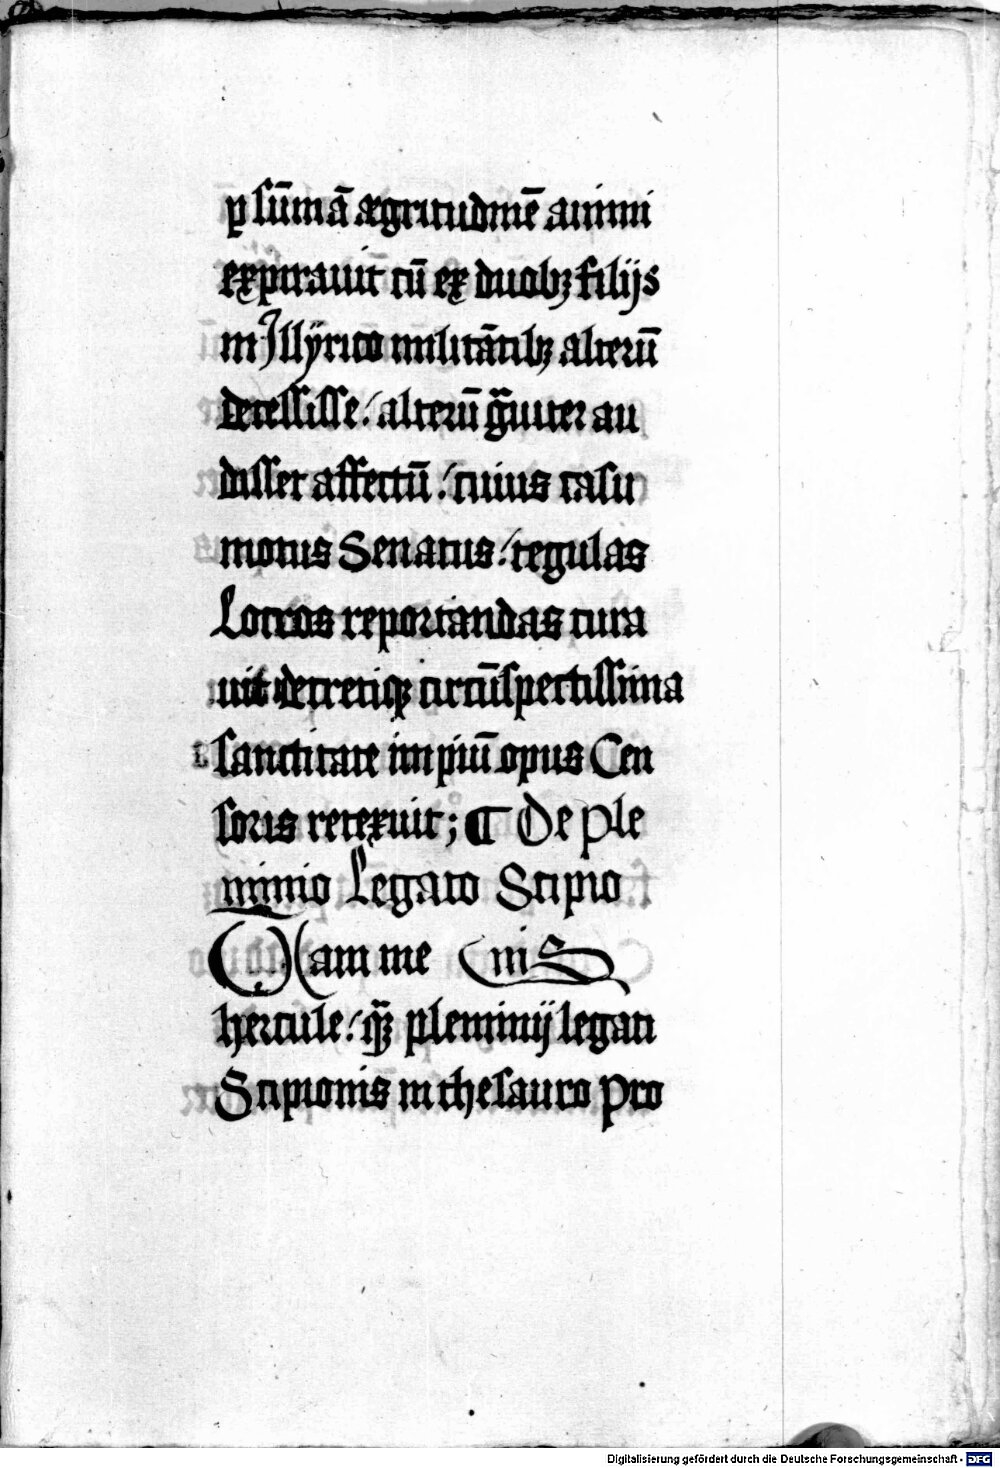 ꝑ sūmā ægritudinē animi
expirauit cū ex duobꝫ filijs
in Illÿrico militātibꝫ alterū
decessisse / alterū g̃uiter au
disset affectū / cuius casu
motus Senatus / tegulas
Locros reportandas cura
uit decretiqꝫ circūspectissima
sanctitate impiū opus Cen
soris retexuit; ¶ De Ple
minio Legato Scipio
Qam me nis
hercule / qꝫ̃ pleminij legati
Scipionis in thesauro Pro
Digitalisierung gefördert durch die Deutsche Forschungsgemeinschaft - DFG